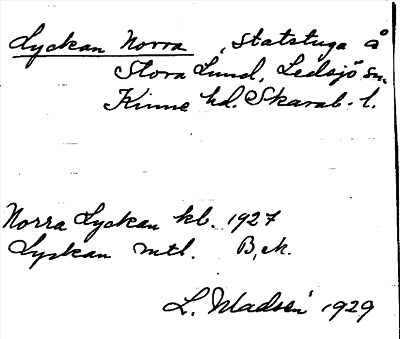 Lyckan Norra, statstuga å
Stora Lund, Ledsjö sn.
Kinne hd. Skarab. l.
Norra Lyckan kb. 1927
Lyckan mtl. B. M.
L. Madsén 1929